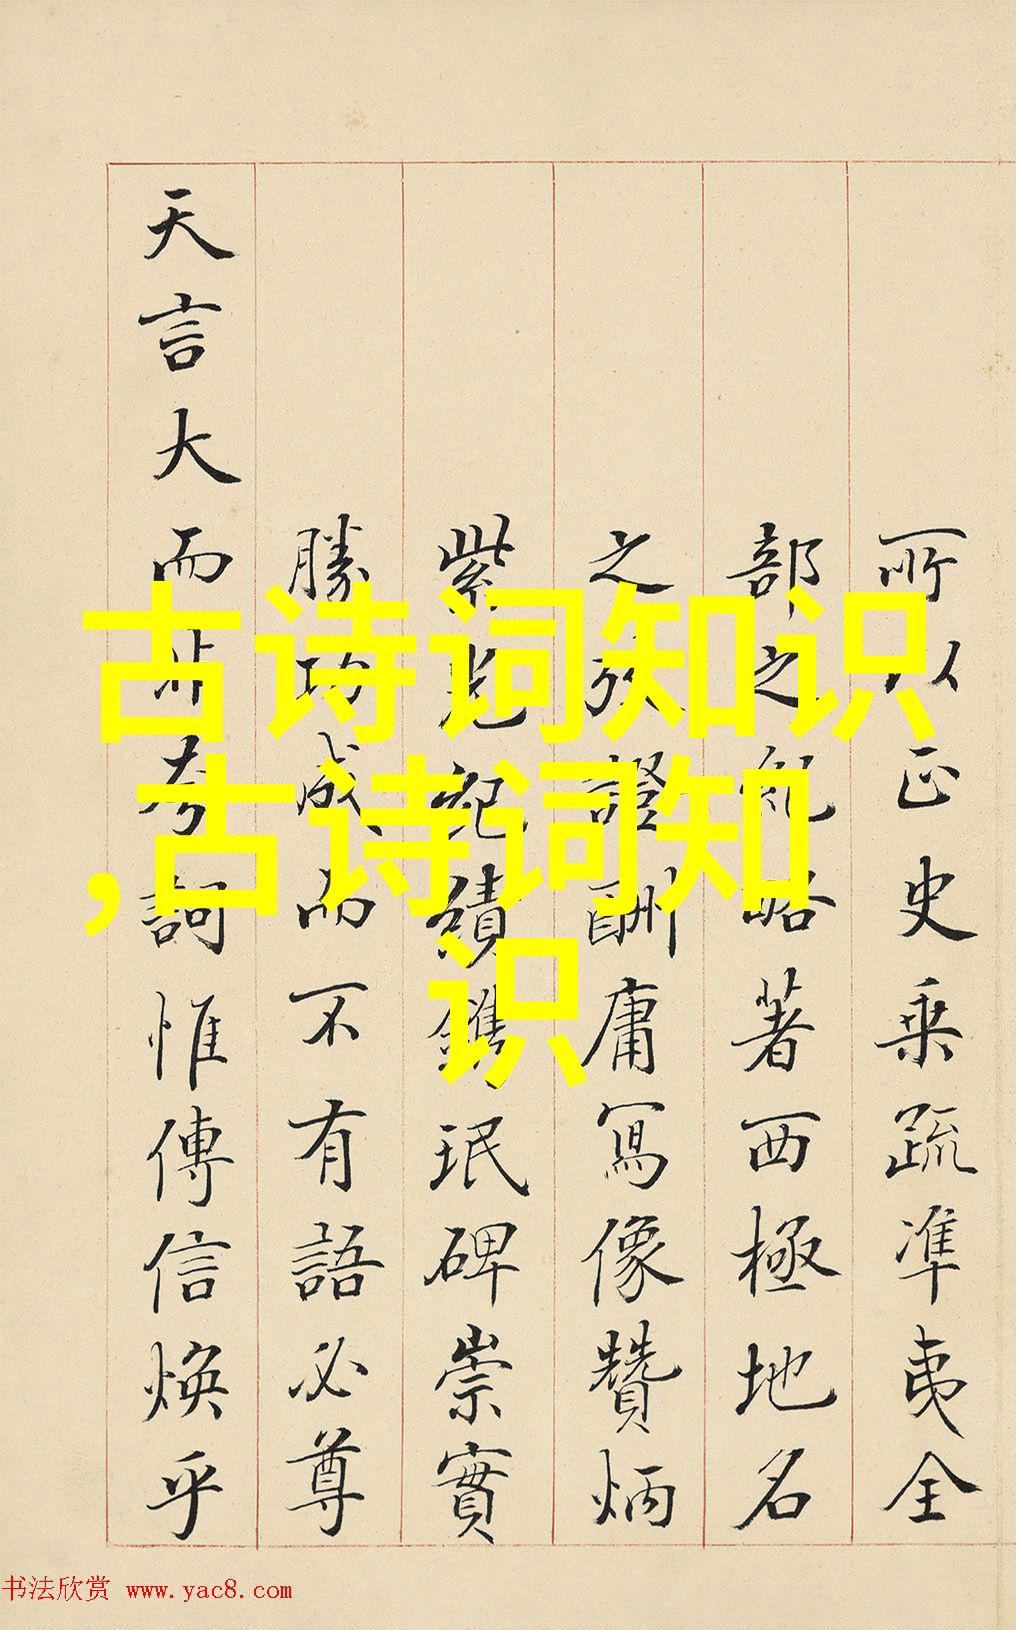 所以正史乗疏準夷全
部之紀略著西極地名
之攷證酬庸寫像贊炳
紫光紀績鐫珉碑崇實
勝功成而不有語必尊
天言大而非夸詞惟傳信煥乎
古诗词知识
,古诗词知
识
书法欣赏 www.yac8.com